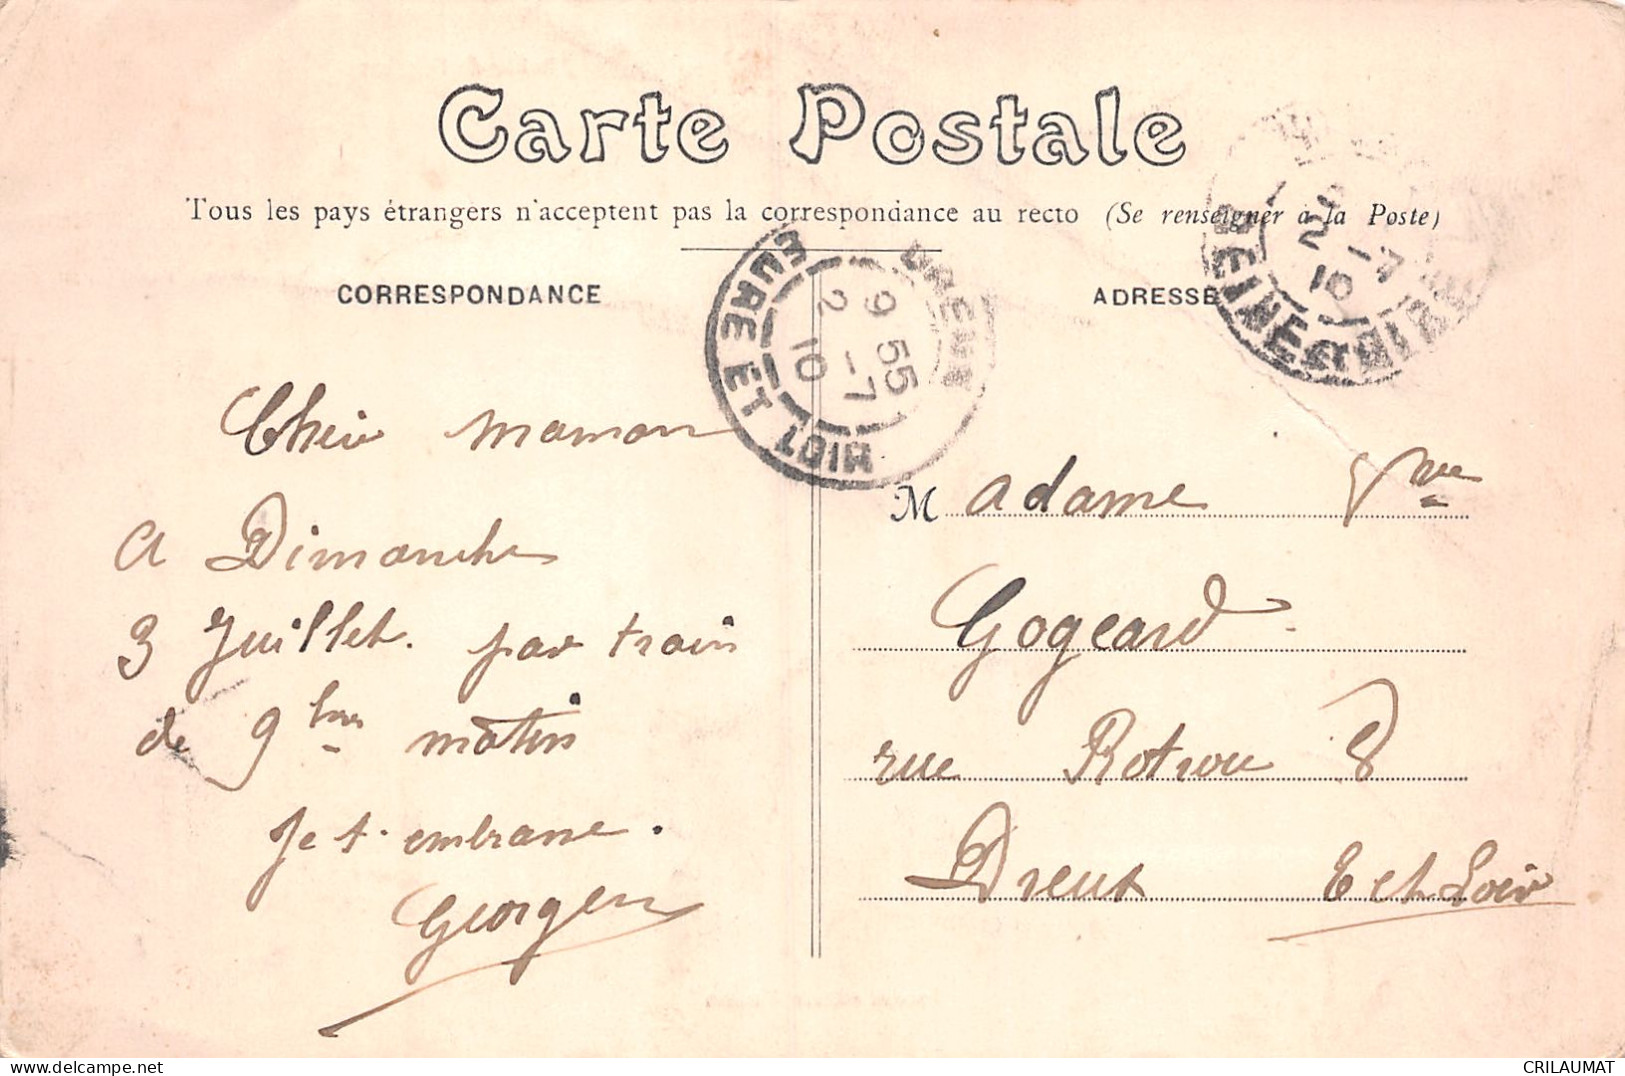 Carte Postale
Tous les pays étrangers n'acceptent pas la correspondance au recto (Se renseigner à la Poste)
CORRESPONDANCE
ADRESSE
DREUX
9 55
2 -7
10
EURE ET LOIR
2 -7
10
SEINE
Chère maman
A Dimanche
3 Juillet. par train
de 9 hrs matin
Je t. embrasse.
Georges
Madame Vve
Gogeard
rue Rotrou 8
Dreux E et Loir
CRILAUMAT